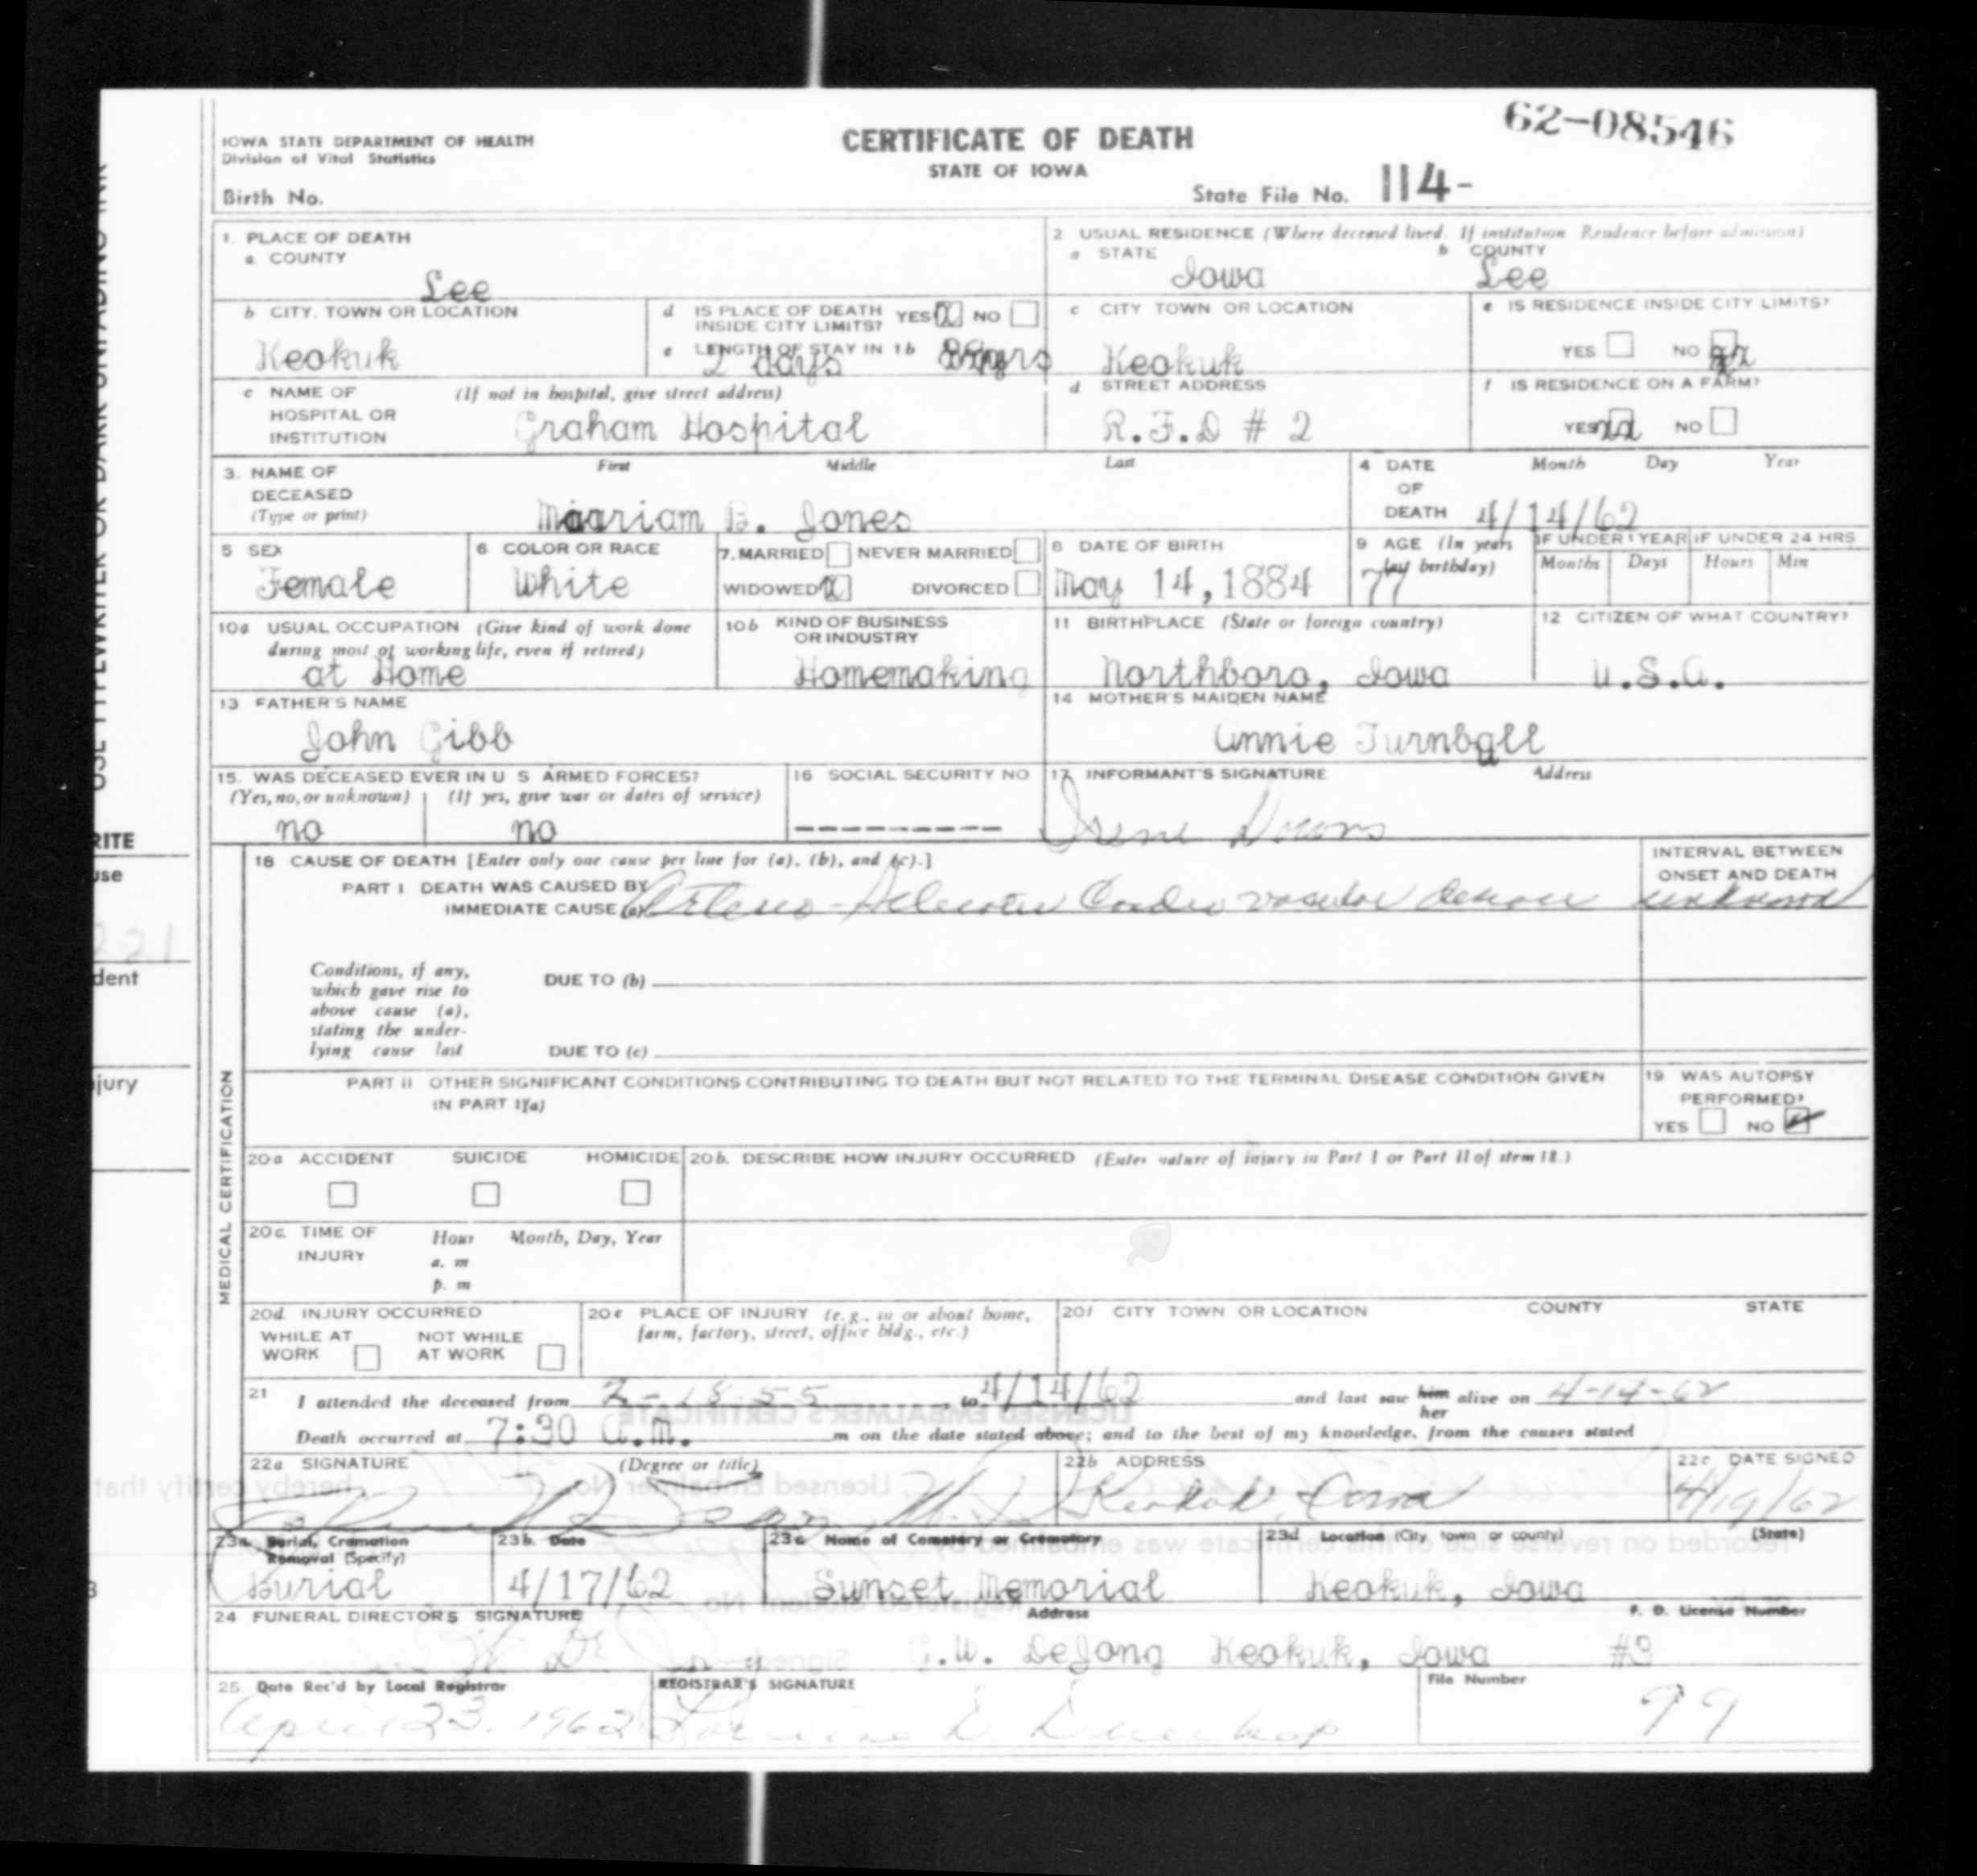 62-08546
IOWA STATE DEPARTMENT OF HEALTH
Division of Vital Statistics
CERTIFICATE OF DEATH
STATE OF IOWA
Birth No.
State File No. 114-
1. PLACE OF DEATH
a COUNTY
Lee
2 USUAL RESIDENCE (Where deceased lived. If institution Residence before admission)
a STATE Iowa b COUNTY Lee
b CITY, TOWN OR LOCATION
Keokuk
d IS PLACE OF DEATH INSIDE CITY LIMITS? YES X NO
e LENGTH OF STAY IN 1b
2 days
c CITY TOWN OR LOCATION
Keokuk
e IS RESIDENCE INSIDE CITY LIMITS?
YES NO
c NAME OF HOSPITAL OR INSTITUTION (If not in hospital, give street address)
Graham Hospital
d STREET ADDRESS
R.F.D # 2
f IS RESIDENCE ON A FARM?
YES NO
3. NAME OF DECEASED (Type or print)
First Middle Last
Maariam B. Jones
4 DATE OF DEATH Month Day Year
4/14/62
5 SEX
Female
6 COLOR OR RACE
White
7. MARRIED NEVER MARRIED
WIDOWED X DIVORCED
8 DATE OF BIRTH
May 14, 1884
9 AGE (In years last birthday)
77
IF UNDER 1 YEAR IF UNDER 24 HRS
Months Days Hours Min
10a USUAL OCCUPATION (Give kind of work done during most of working life, even if retired)
at Home
10b KIND OF BUSINESS OR INDUSTRY
Homemaking
11 BIRTHPLACE (State or foreign country)
Northboro, Iowa
12 CITIZEN OF WHAT COUNTRY?
U.S.A.
13 FATHER'S NAME
John Gibb
14 MOTHER'S MAIDEN NAME
Annie Turnball
15. WAS DECEASED EVER IN U S ARMED FORCES?
(Yes, no, or unknown) (If yes, give war or dates of service)
no no
16 SOCIAL SECURITY NO
---------
17. INFORMANT'S SIGNATURE Address
Irene Downs
18 CAUSE OF DEATH [Enter only one cause per line for (a), (b), and (c).]
INTERVAL BETWEEN ONSET AND DEATH
PART I DEATH WAS CAUSED BY
IMMEDIATE CAUSE (a) Arterio-Sclerotic Cardio vascular disease unknown
Conditions, if any, which gave rise to above cause (a), stating the underlying cause last
DUE TO (b)
DUE TO (c)
PART II OTHER SIGNIFICANT CONDITIONS CONTRIBUTING TO DEATH BUT NOT RELATED TO THE TERMINAL DISEASE CONDITION GIVEN IN PART I(a)
19 WAS AUTOPSY PERFORMED?
YES NO
MEDICAL CERTIFICATION
20a ACCIDENT SUICIDE HOMICIDE
20b. DESCRIBE HOW INJURY OCCURRED (Enter nature of injury in Part I or Part II of item 18.)
20c. TIME OF INJURY Hour Month, Day, Year
a. m
p. m
20d. INJURY OCCURRED
WHILE AT WORK NOT WHILE AT WORK
20e PLACE OF INJURY (e.g., in or about home, farm, factory, street, office bldg., etc.)
20f CITY TOWN OR LOCATION COUNTY STATE
21 I attended the deceased from 2-18-55 to 4/14/62 and last saw him her alive on 4-14-62
Death occurred at 7:30 a.m. m on the date stated above; and to the best of my knowledge, from the causes stated
22a SIGNATURE (Degree or title)
22b ADDRESS
Keokuk, Iowa
22c DATE SIGNED
4/19/62
23a. Burial, Cremation Removal (Specify)
Burial
23b. Date
4/17/62
23c Name of Cemetery or Crematory
Sunset Memorial
23d Location (City, town or county) (State)
Keokuk, Iowa
24 FUNERAL DIRECTORS SIGNATURE Address F. D. License Number
.W. DeJong Keokuk, Iowa #3
25. Date Rec'd by Local Registrar
April 23, 1962
REGISTRAR'S SIGNATURE
File Number
99